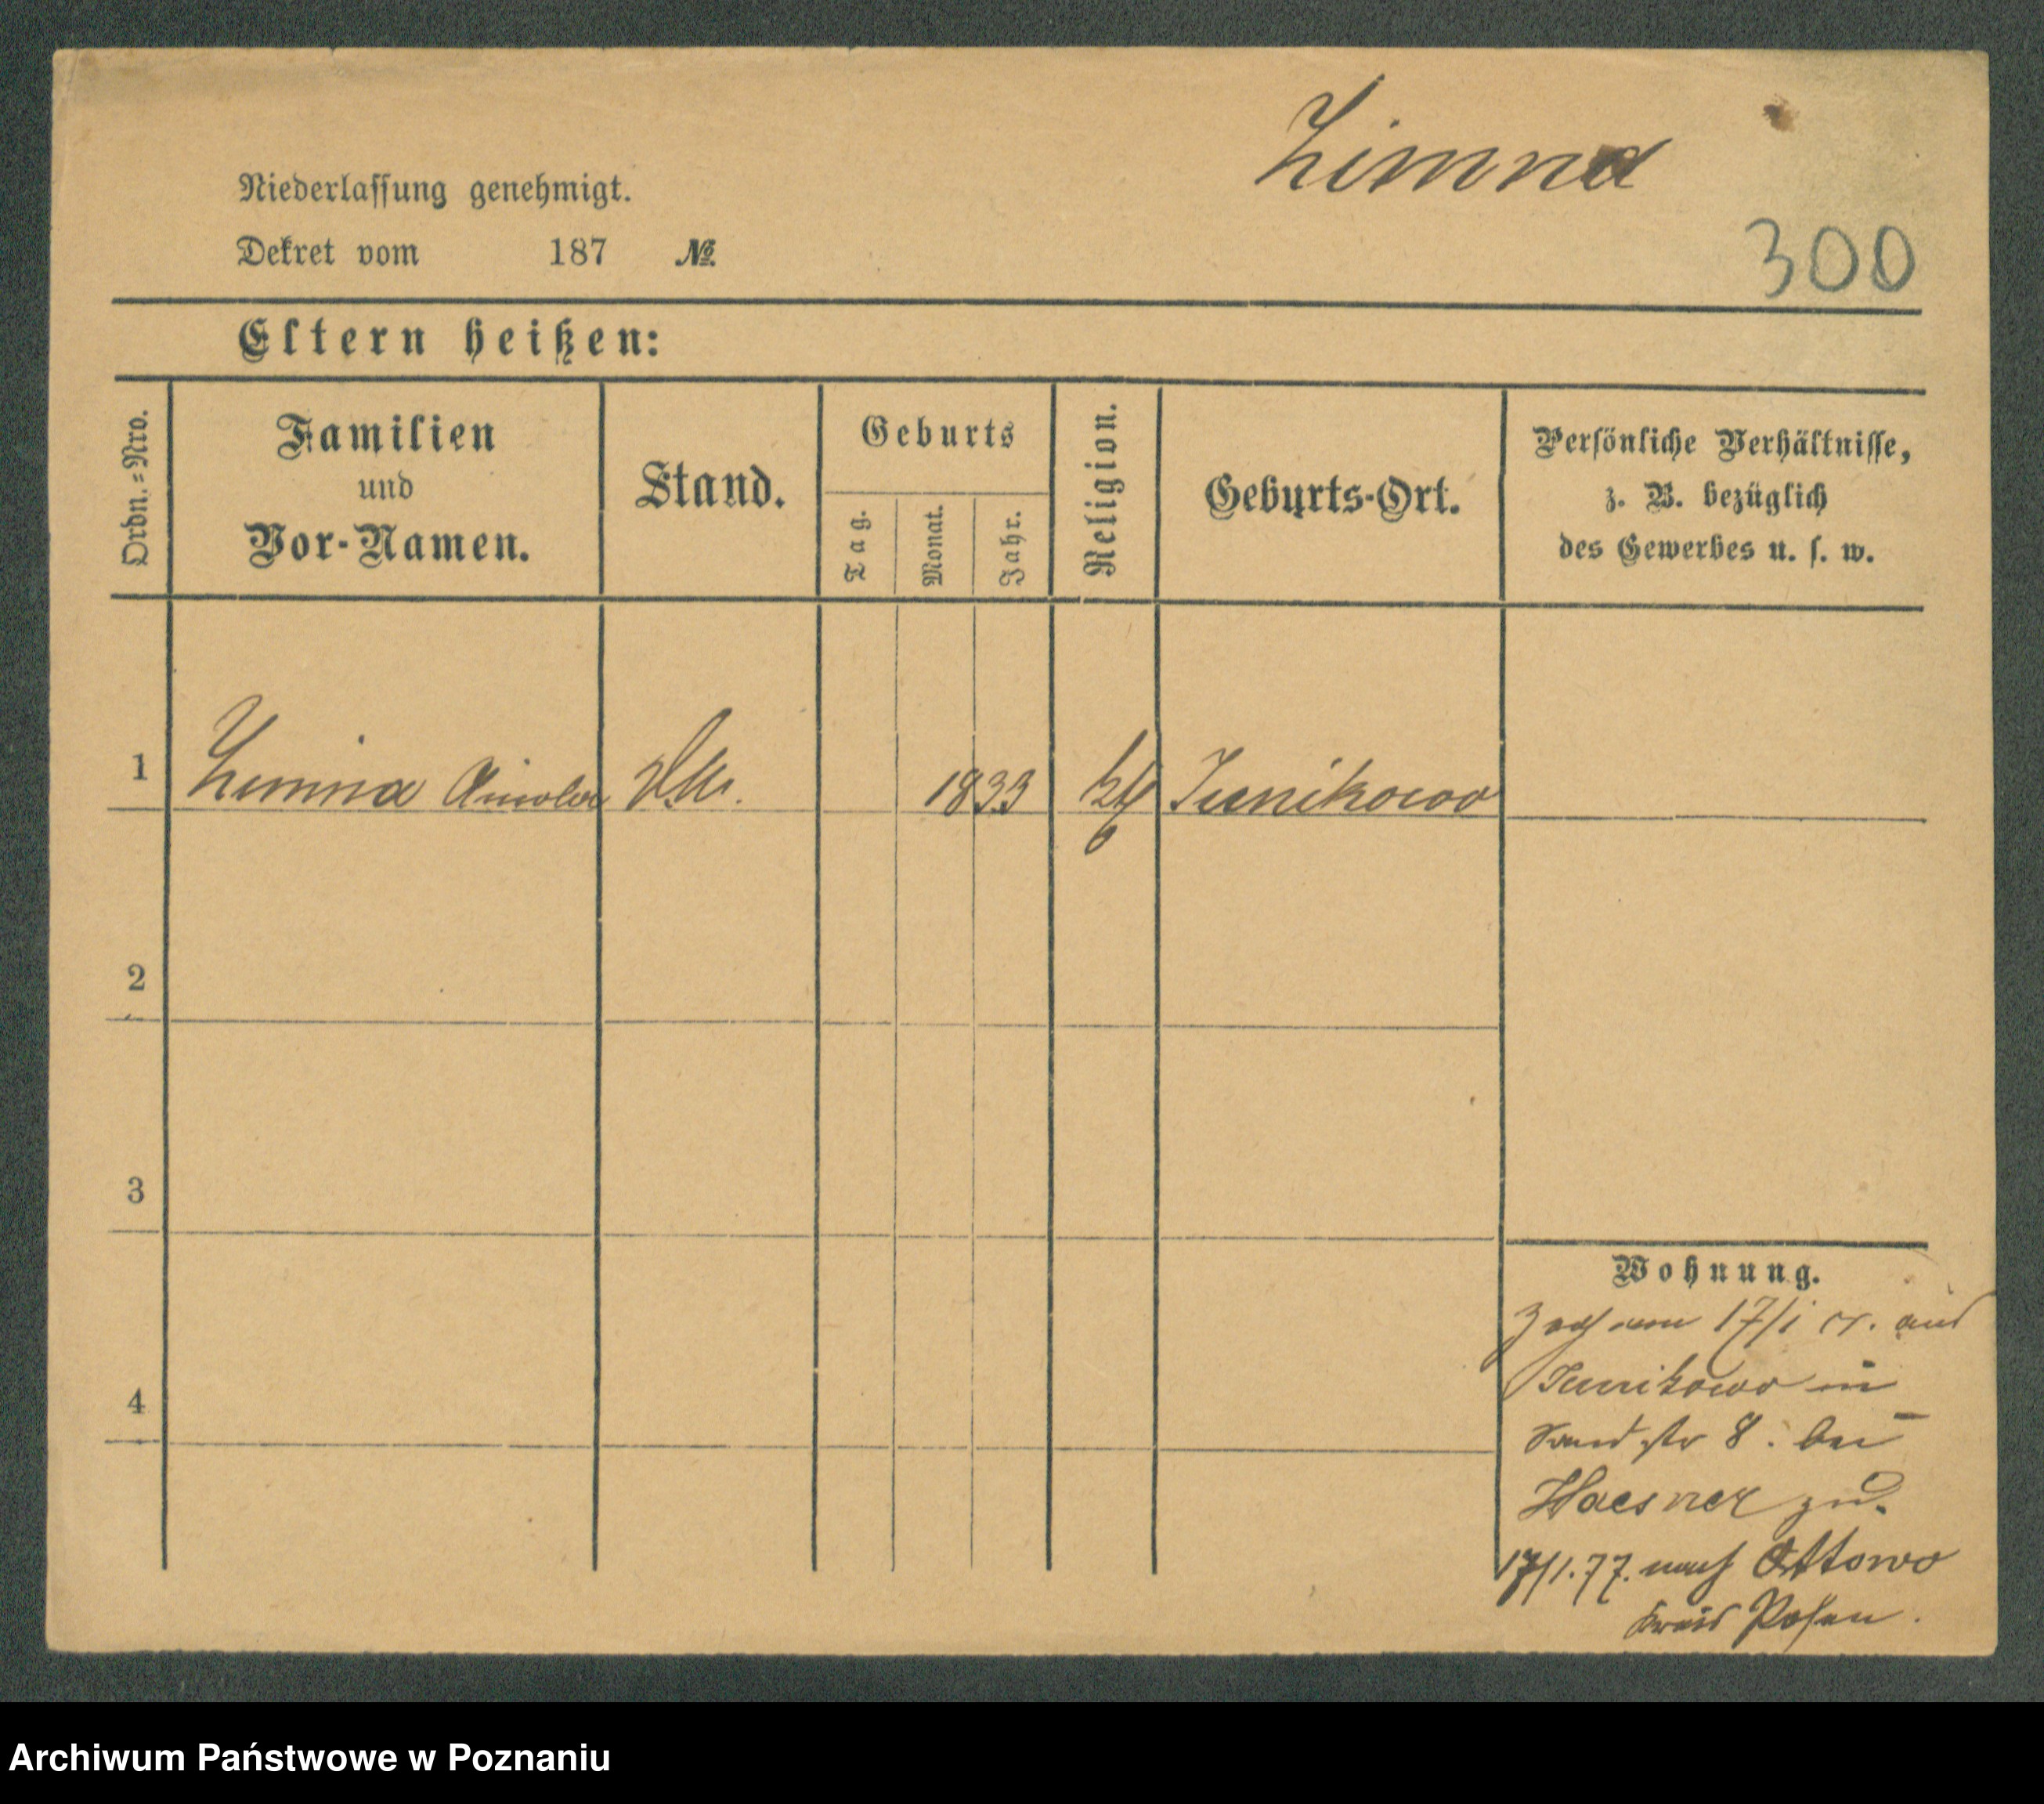 Zimna
Niederlassung genehmigt.
Dekret vom 187 №.
300
Eltern heißen:
Ordn.=Nro.
Familien
und
Vor-Namen.
Stand.
Geburts
Tag.
Monat.
Jahr.
Religion.
Geburts-Ort.
Persönliche Verhältnisse,
z. B. bezüglich
des Gewerbes u. s. w.
1 Zimna 1833 kth Junikowo
2
3
4
Wohnung.
Zog am 17/1 cr. aus
Junikowo in
Sandstr 8. bei
Haesner zu.
17/1.77. nach Ottowo
Kreis Posen.
Archiwum Państwowe w Poznaniu